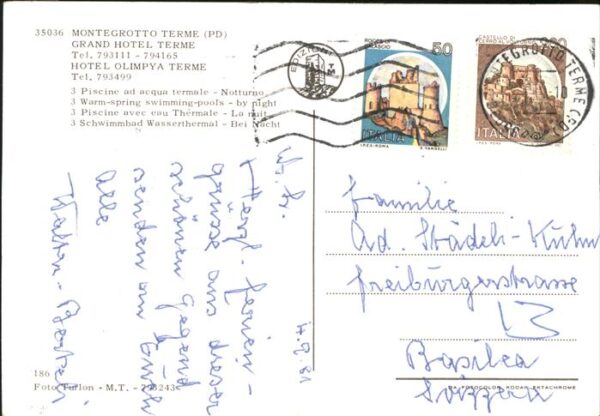 35036 MONTEGROTTO TERME (PD)
GRAND HOTEL TERME
Tel. 793111 - 794165
HOTEL OLIMPYA TERME
Tel. 793499
3 Piscine ad acqua termale - Notturno
3 Warm-spring swimming-pools - by night
3 Piscine avec eau Thérmale - La nuit
3 Schwimmbad Wasserthermal - Bei Nacht
EDIZIONI
TM
ROCCA DI
50
ITALIA
I.P.Z.S.-ROMA
CASTELLO DI
ITALIA
MONTEGROTTO TERME (PD)
10
Herzl. Ferien-
grüsse aus dieser
schönen Gegend
senden an Euch
alle
Familie
Ad. Städeli-Kuhn
Freiburgerstrasse
13
Basilea
Svizzera
186
Foto Turlon - M.T. -
DA FOTOCOLOR KODAK EKTACHROME